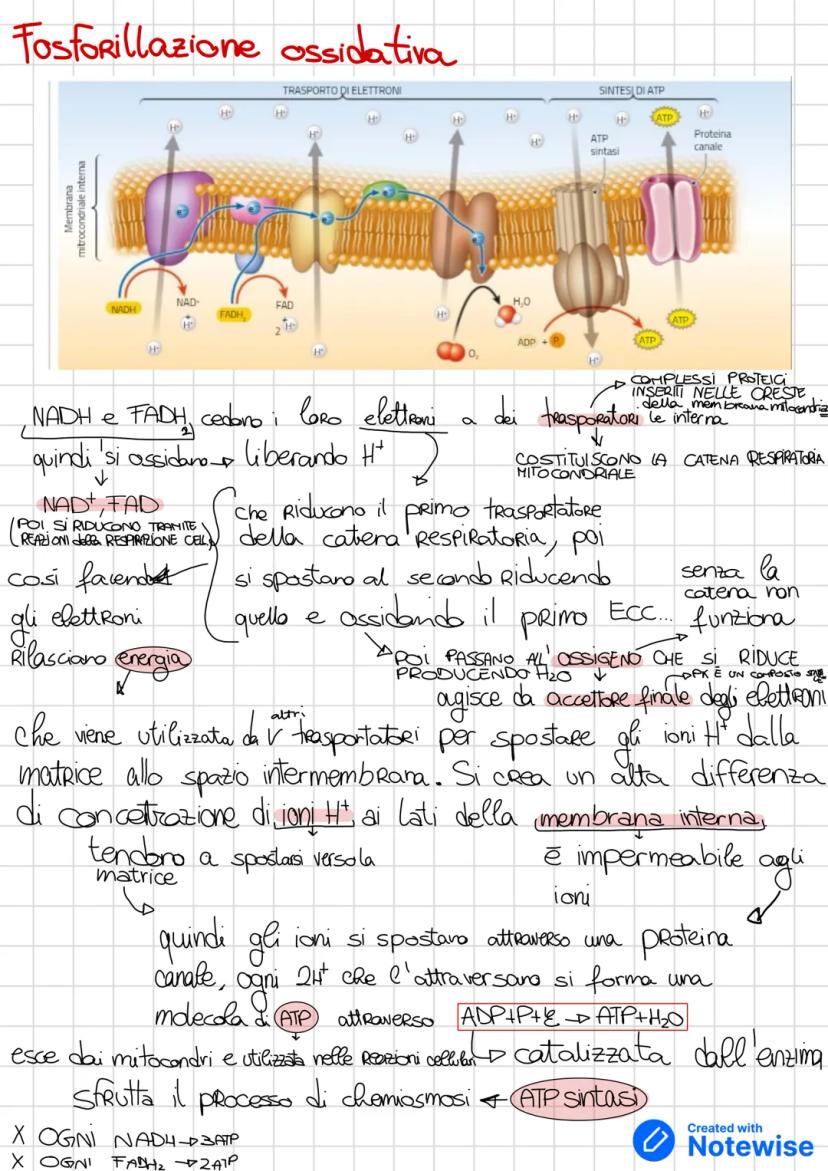 Fosforillazione ossidativa
TRASPORTO DI ELETTRONI
SINTESI DI ATP
H+ H+ H+ H+ H+ H+ H+ H+ H+ H+ ATP H+
H+
ATP sintasi
Proteina canale
Membrana mitocondriale interna
e- e- e- e- e-
NADH
NAD+
+
H+
FADH2
FAD
+
2 H+
H+
H+
H+
O2
H2O
ADP + P
ATP
ATP
H+
COMPLESSI PROTEICI
INSERITI NELLE CRESTE
della membrana mitocondria
le interna
NADH e FADH2 cedono i loro elettroni a dei trasporatori
quindi si ossidano → liberando H+
COSTITUISCONO LA CATENA RESPIRATORIA
MITOCONDRIALE
NAD+, FAD
(POI SI RIDUCONO TRAMITE
REAZIONI della RESPIRAZIONE CELL)
che riducono il primo trasportatore
della catena respiratoria, poi
si spostano al secondo riducendo
quello e ossidando il primo ECC...
senza la
catena non
funziona
così facendo
gli elettroni
rilasciano energia
POI PASSANO ALL'OSSIGENO CHE SI RIDUCE
PRODUCENDO H2O
agisce da accettore finale degli elettroni
che viene utilizzata da altri trasportatori per spostare gli ioni H+ dalla
matrice allo spazio intermembrana. Si crea un alta differenza
di concetrazione di ioni H+ ai lati della membrana interna
tendono a spostarsi verso la
matrice
è impermeabile agli
ioni
quindi gli ioni si spostano attraverso una proteina
canale, ogni 2H+ che l'attraversano si forma una
molecola di ATP attraverso ADP+P+E → ATP+H2O
esce dai mitocondri e utilizzata nelle reazioni cellulari
catalizzata dall'enzima
sfrutta il processo di chemiosmosi ← ATP sintasi
X OGNI NADH → 3ATP
X OGNI FADH2 → 2ATP
Created with
Notewise